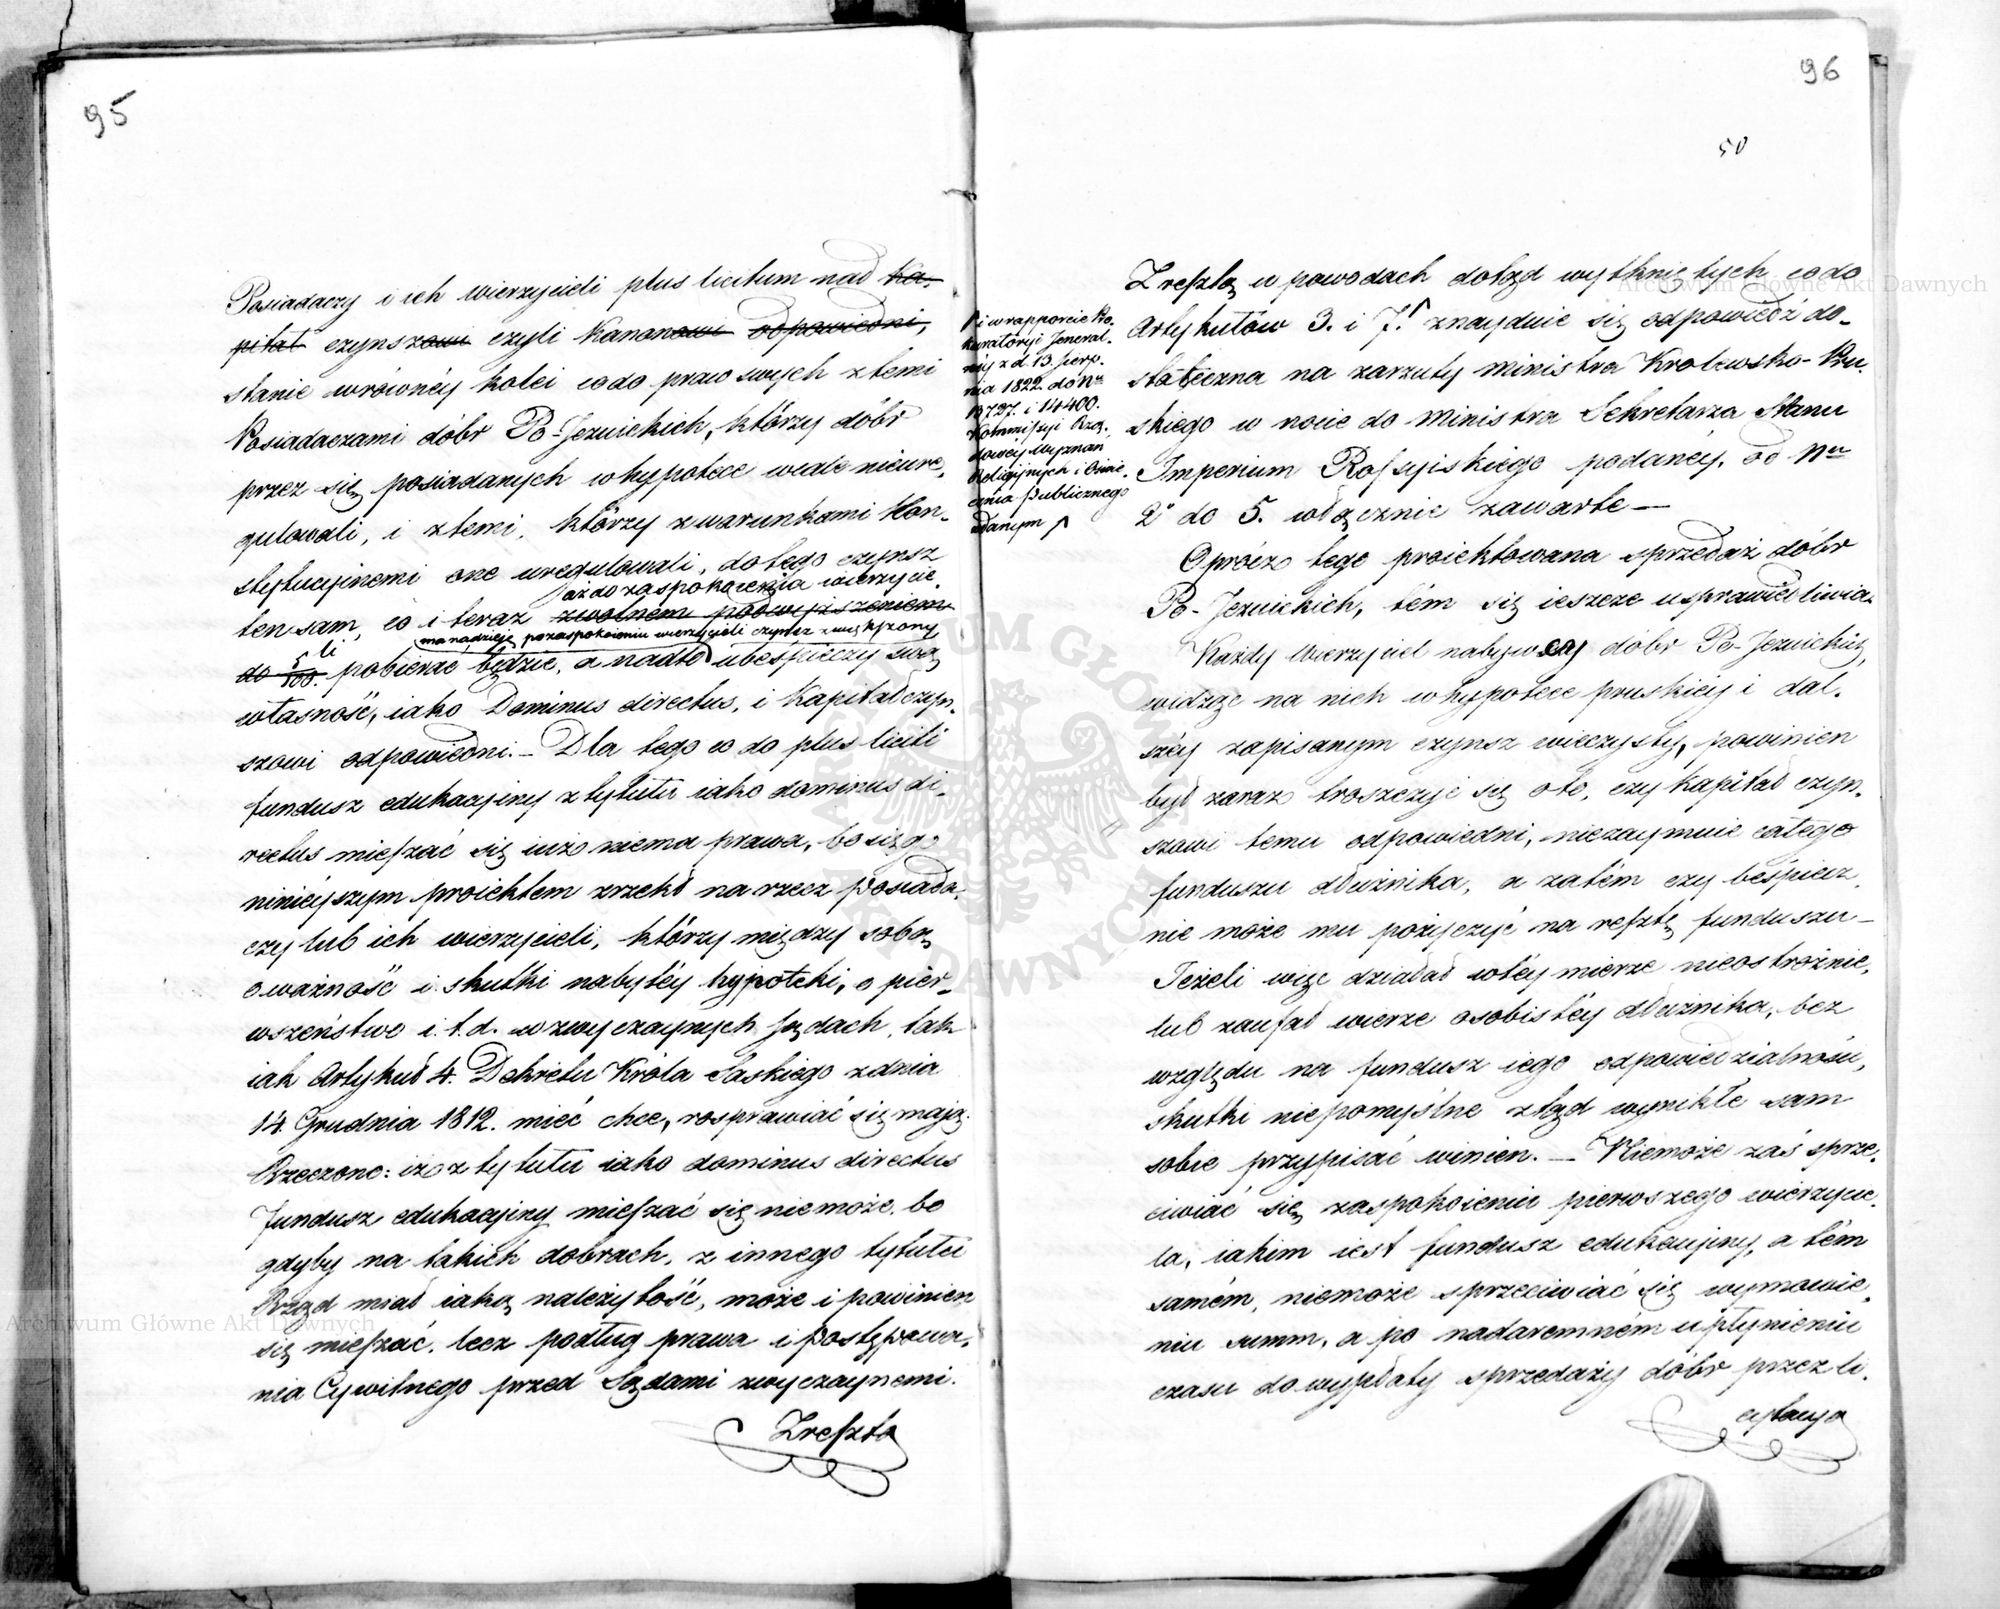 95
Posiadaczy i ich wierzycieli plus licitum nad ka-
pitał czynszowi czyli kanonowi odpowiedni,
stanie w równéy kolei co do praw swych z temi
Posiadaczami dóbr Po-Jezuickich, którzy dóbr
przez się posiadanych w hypotece wcale nieure-
gulowali, i z temi, którzy z warunkami kon-
stytucyinemi one uregulowali, do tego czynsz
aż do zaspokoienia wierzycie-
ten sam, co i teraz zwolnem podwyższeniem
li
ma nadzieię po zaspokoieniu wierzycieli czynsz zwiększony
do 5/100. pobierać będzie, a nadto ubespieczy swą
własność, iako Dominus directus, i Kapitał czyn-
szowi odpowiedni. – Dla tego co do plus liciti
fundusz edukacyiny z tytułu iako dominus di-
rectus mieszać się iuż niema prawa, bo się go
ninieyszym proiektem zrzekł na rzecz Posiada-
czy lub ich wierzycieli, którzy między sobą
o ważność i skutki nabytéy hypoteki, o pier-
wszeństwo i t.d. w zwyczaynych Sądach, tak
iak Artykuł 4. Dekretu Króla Saskiego z dnia
14. Grudnia 1812. mieć chce, rosprawiać się maią.
Rzeczono: iż z tytułu iako dominus directus
fundusz edukacyiny mieszać się nie może, bo
gdyby na takich dobrach, z innego tytułu
Rząd miał iaką należytość, może i powinien
się mieszać, lecz podług prawa i postępowa-
nia Cywilnego przed Sądami zwyczaynemi.
Zresztą
96
50
i w rapporcie Pro-
kuratoryi Jeneral-
néy z d. 13. Sierp-
nia 1822. do Nru
13727. i 14400.
Kommissyi Rzą-
dowéy Wyznań
Religijnych i Oświe-
cenia Publicznego
zdanym
Zresztą w powodach dotąd wytkniętych co do
Artykułów 3. i 7. znayduie się odpowiedź do-
stateczna na zarzuty Ministra Krolewsko-Pru-
skiego w nocie do Ministra Sekretarza Stanu
Imperium Rossyiskiego podanéy, od Nru
2o do 5. włącznie zawarte —
Oprócz tego proiektowana sprzedaż dóbr
Po-Jezuickich, tém się ieszcze usprawiedliwia.
Każdy Wierzyciel nabywcy dóbr Po-Jezuickich,
widząc na nich w hypotece pruskiéy i dal-
széy zapisanym czynsz wieczysty, powinien
był zaraz troszczyć się o to, czy kapitał czyn-
szowi temu odpowiedni, niezaymuie całego
funduszu dłużnika, a zatém czy bespiecz-
nie może mu pożyczyć na resztę funduszu —
Jeżeli więc działał w téy mierze nieostrożnie,
lub zaufał wierze osobistéy dłużnika, bez
względu na fundusz iego odpowiedzialności,
skutki niepomyślne ztąd wynikłe sam
sobie przypisać winien. — Niemoże zaś sprze-
ciwiać się zaspokoieniu pierwszego wierzycie-
la, iakim iest fundusz edukacyiny, a tém
samém, niemoże sprzeciwiać się wymowie-
niu summ, a po nadaremném upłynieniu
czasu do wypłaty sprzedaży dóbr przez li-
cytacyą
Archiwum Główne Akt Dawnych
Archiwum Główne Akt Dawnych
ARCHIWUM GŁÓWNE AKT DAWNYCH